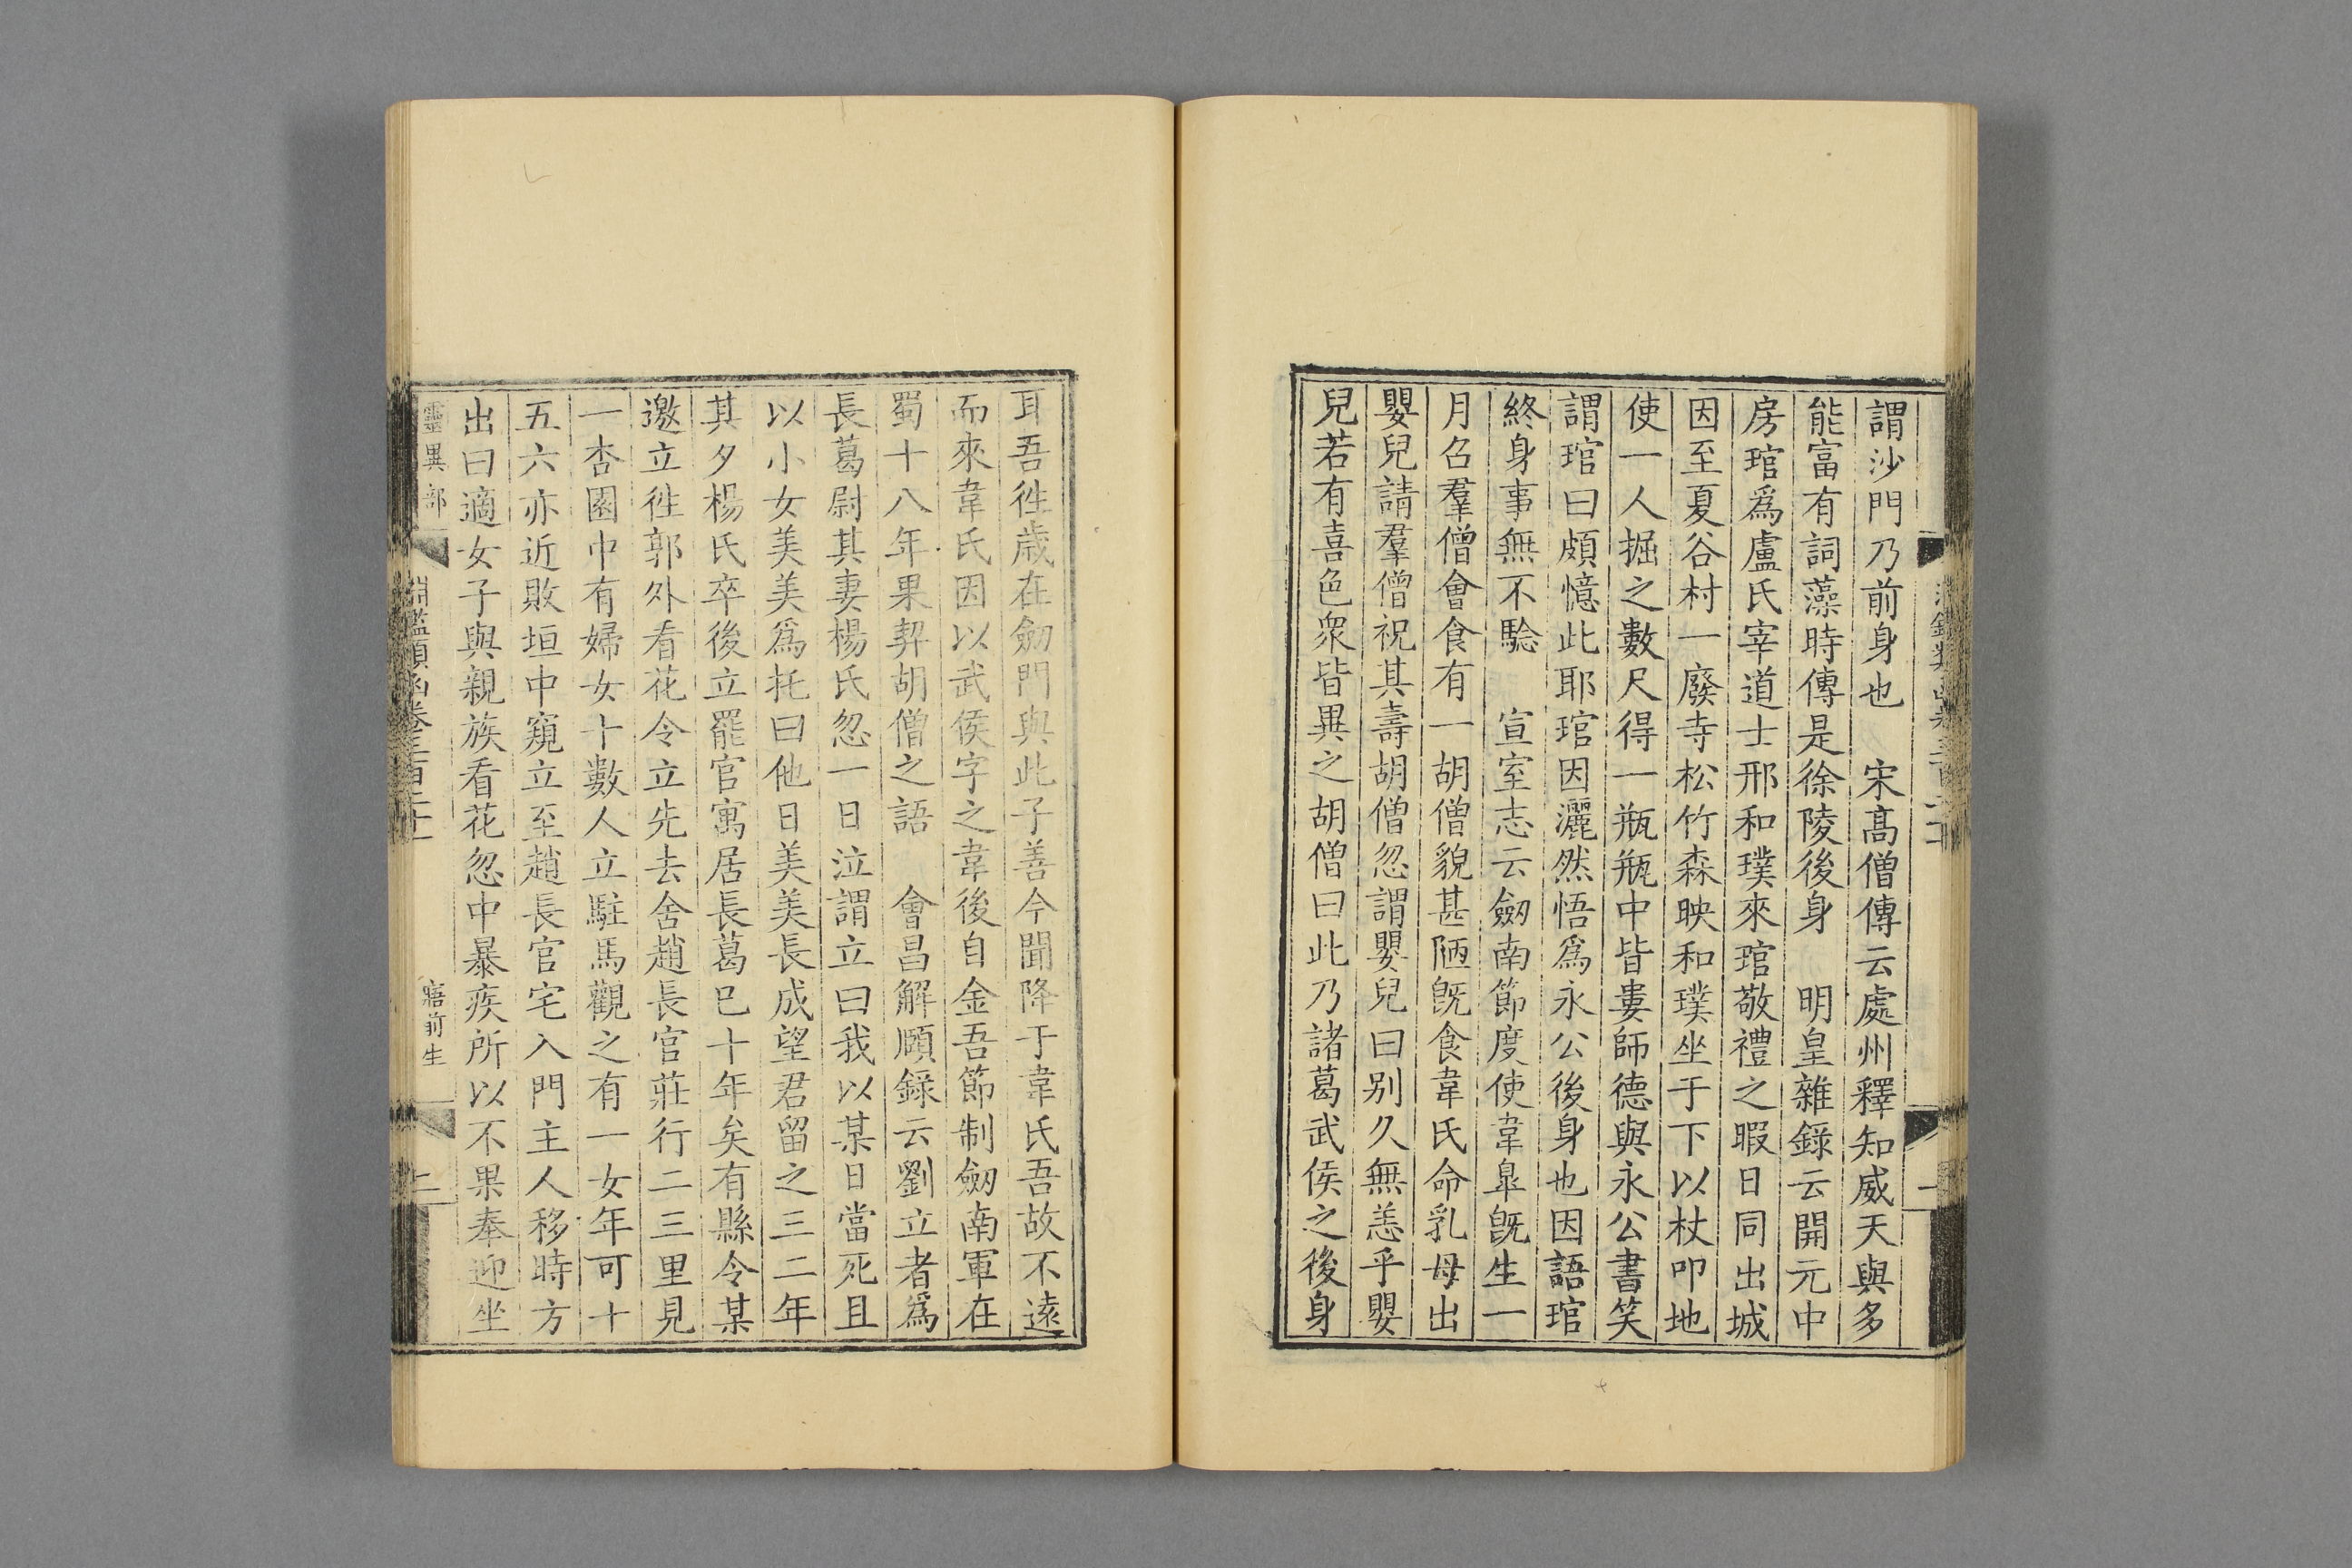 謂沙門乃前身也　宋高僧傳云處州釋知威天與多
能富有詞藻時傳是徐陵後身　明皇雜錄云開元中
房琯爲盧氏宰道士邢和璞來琯敬禮之暇日同出城
因至夏谷村一廢寺松竹森映和璞坐于下以杖叩地
使一人掘之數尺得一瓶瓶中皆婁師德與永公書笑
謂琯曰頗憶此耶琯因灑然悟爲永公後身也因語琯
終身事無不驗　宣室志云劒南節度使韋臯旣生一
月召羣僧會食有一胡僧貌甚陋旣食韋氏命乳母出
嬰兒請羣僧祝其壽胡僧忽謂嬰兒曰别久無恙乎嬰
兒若有喜色衆皆異之胡僧曰此乃諸葛武侯之後身
耳吾徃歳在劒門與此子善今聞降于韋氏吾故不遠
而來韋氏因以武侯字之韋後自金吾節制劒南軍在
蜀十八年果契胡僧之語　會昌解頤錄云劉立者爲
長葛尉其妻楊氏忽一日泣謂立曰我以某日當死且
以小女美美爲托曰他日美美長成望君留之三二年
其夕楊氏卒後立罷官寓居長葛巳十年矣有縣令某
邀立徃郭外看花令立先去舍趙長官莊行二三里見
一杏園中有婦女十數人立駐馬觀之有一女年可十
五六亦近敗垣中窺立至趙長官宅入門主人移時方
出曰適女子與親族看花忽中暴疾所以不果奉迎坐
靈異部
淵鑑類函卷三百二十一
寤前生
二